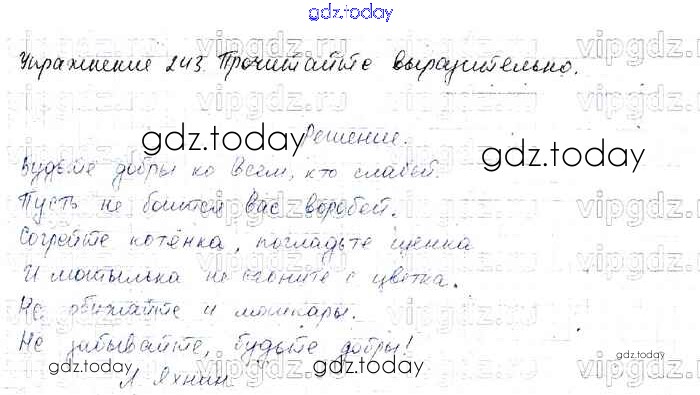 gdz.today
Упражнение 243. Прочитайте выразительно.
Решение.
gdz.today
gdz.today
Будьте добры ко всем, кто слабей.
Пусть не боится вас воробей.
Согрейте котёнка, погладьте щенка
И мотылька не сгоните с цветка.
Не обижайте и мошкары.
Не забывайте, будьте добры!
gdz.today
gdz.today
gdz.today
Л. Яхнин